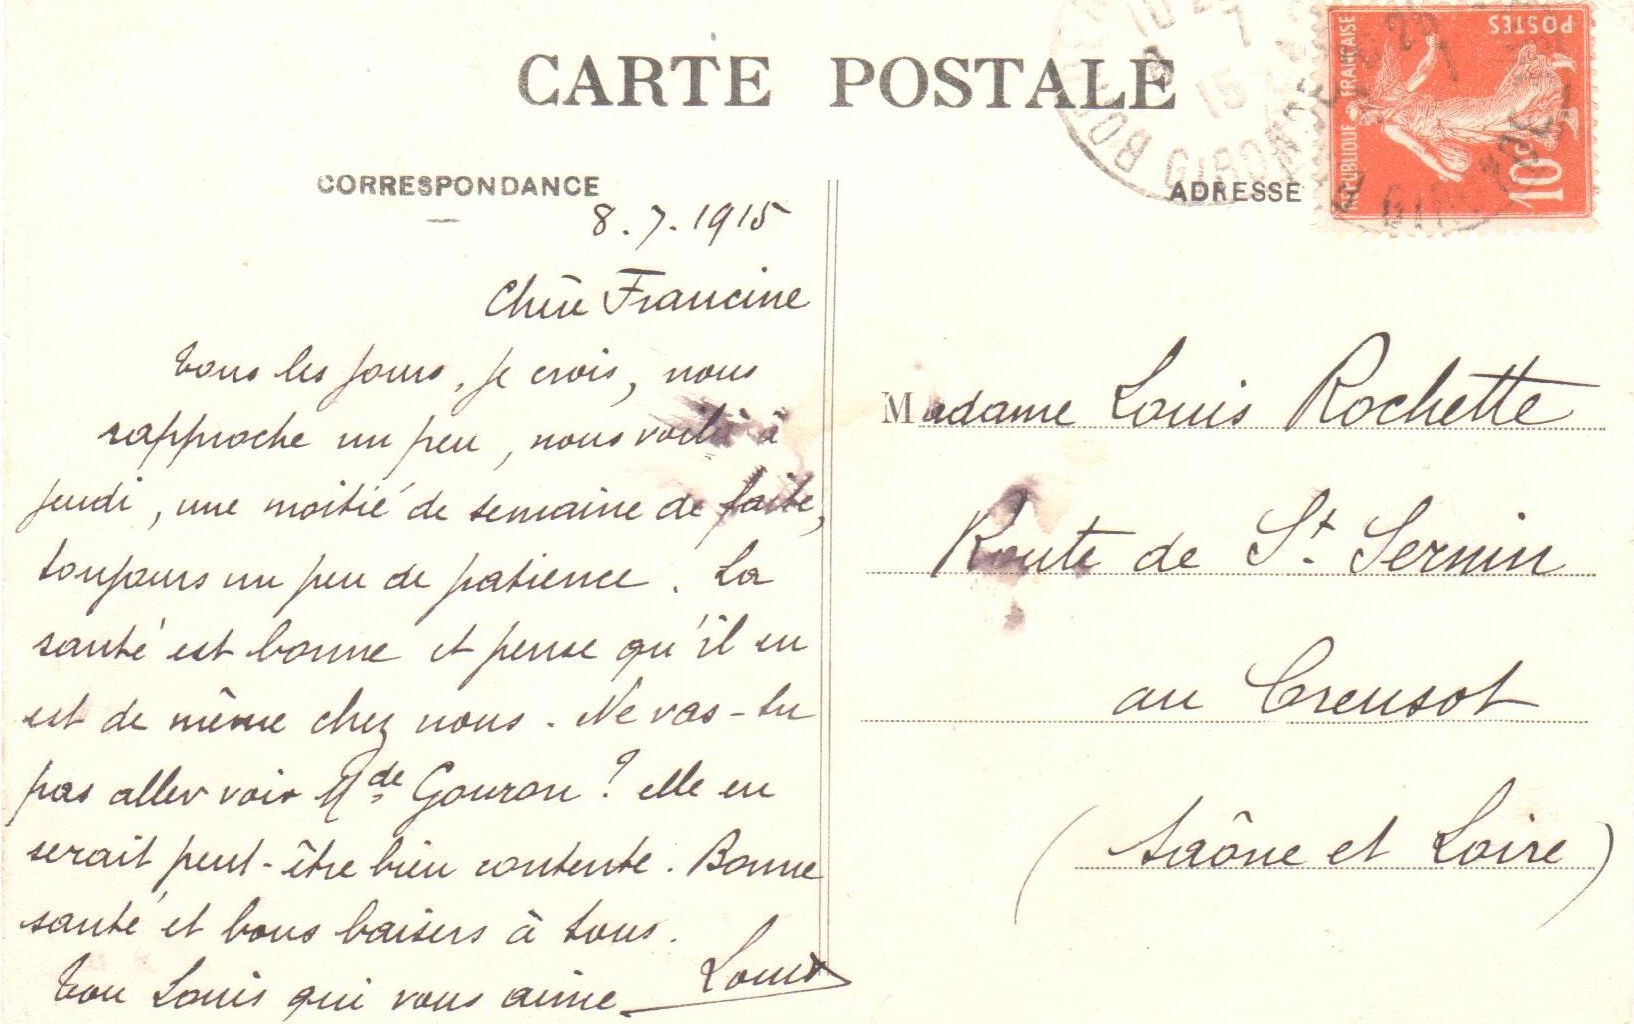 CARTE POSTALE
CORRESPONDANCE
8.7.1915
Chère Francine
Tous les jours, je crois, nous
rapproche un peu, nous voilà à
jeudi, une moitié de semaine de faite,
toujours un peu de patience. La
santé est bonne et pense qu'il en
est de même chez nous. Ne vas-tu
pas aller voir Mde Gouron? elle en
serait peut-être bien contente. Bonne
santé et bons baisers à tous.
Ton Louis qui vous aime
Louis
ADRESSE
Madame Louis Rochette
Route de St. Sernin
au Creusot
(Saône et Loire)
REPUBLIQUE FRANÇAISE
POSTES
10c
GIRONDE